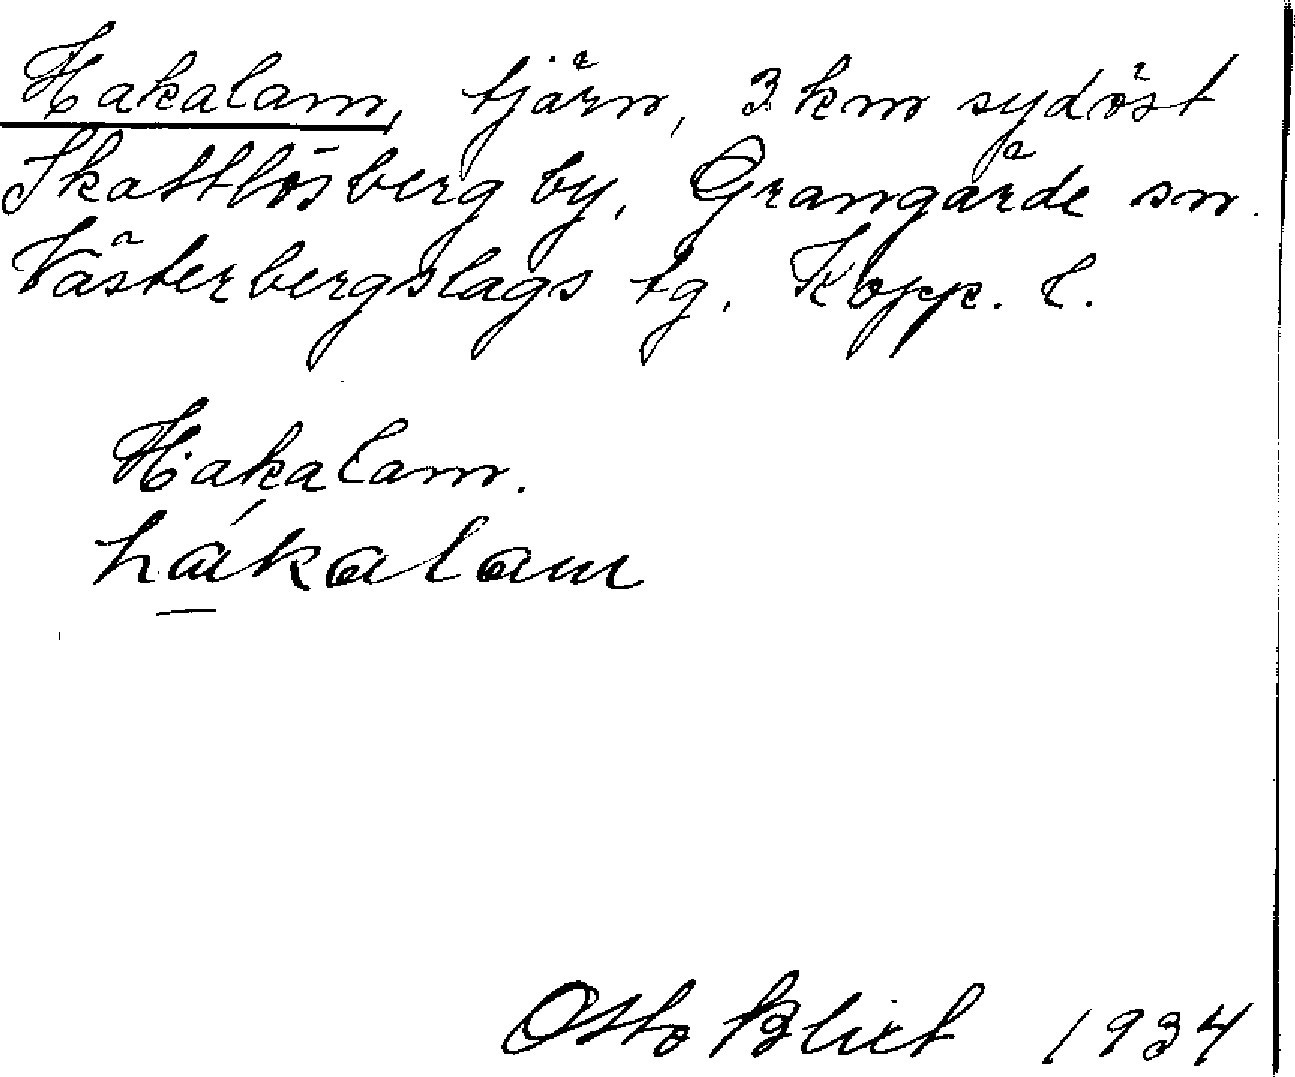 Hakalam, tjärn, 3 km sydöst
Skattlösberg by, Grangärde sn.
Västerbergslags tg, Kopp. l.
Hakalam.
hákalam
Otto Blixt 1934